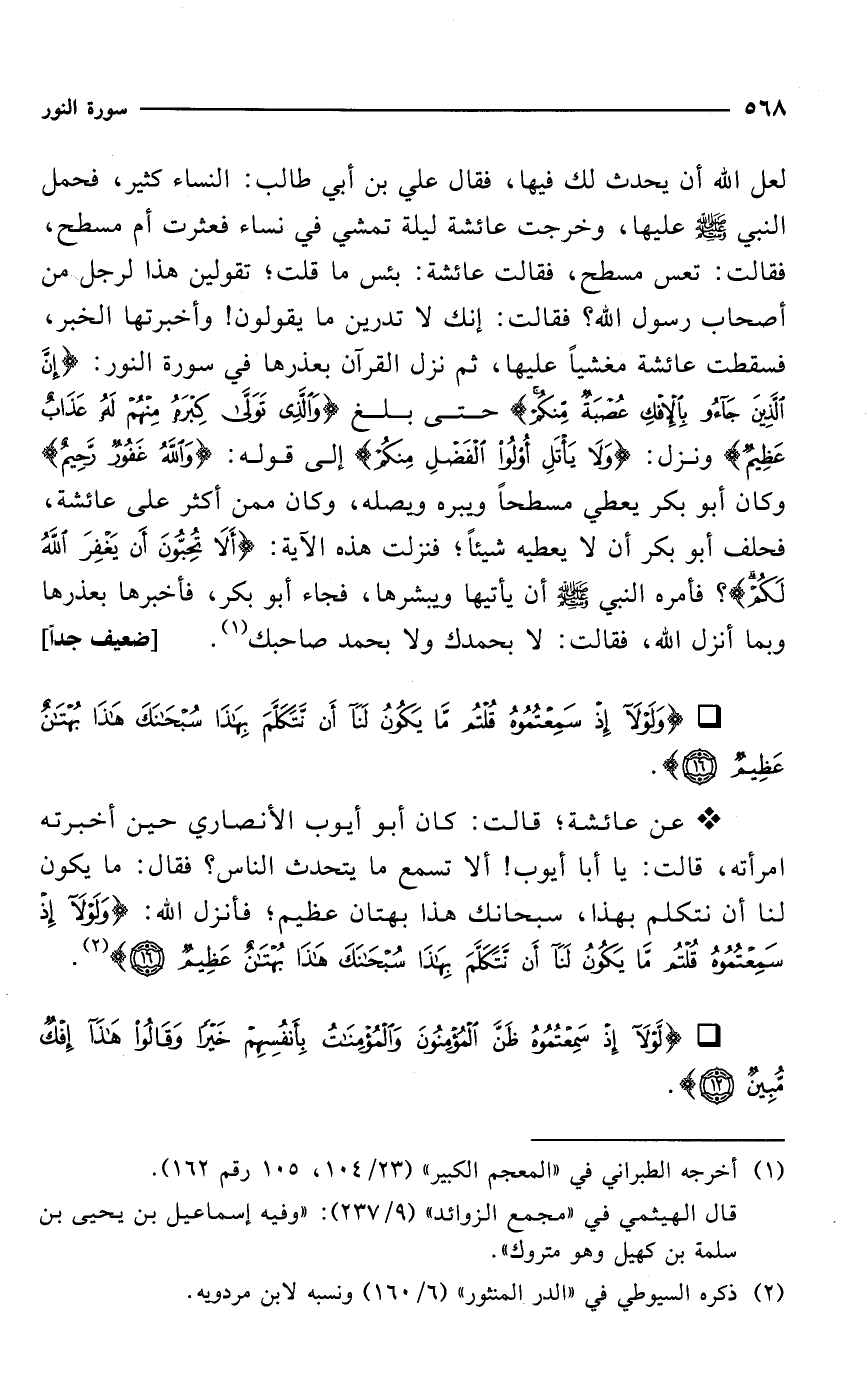 ٥٦٨ سورة النور
لعل الله أن يحدث لك فيها، فقال علي بن أبي طالب: النساء كثير، فحمل
النبي ﷺ عليها، وخرجت عائشة ليلة تمشي في نساء فعثرت أم مسطح،
فقالت: تعس مسطح، فقالت عائشة: بئس ما قلت؛ تقولين هذا لرجل من
أصحاب رسول الله؟ فقالت: إنك لا تدرين ما يقولون! وأخبرتها الخبر،
فسقطت عائشة مغشياً عليها، ثم نزل القرآن بعذرها في سورة النور: ﴿إِنَّ
ٱلَّذِينَ جَآءُو بِٱلْإِفْكِ عُصْبَةٌ مِّنكُمْۚ﴾ حتى بلغ ﴿وَٱلَّذِى تَوَلَّىٰ كِبْرَهُۥ مِنْهُمْ لَهُۥ عَذَابٌ
عَظِيمٌ﴾ ونزل: ﴿وَلَا يَأْتَلِ أُوْلُواْ ٱلْفَضْلِ مِنكُمْ﴾ إلى قوله: ﴿وَٱللَّهُ غَفُورٌ رَّحِيمٌ﴾
وكان أبو بكر يعطي مسطحاً ويبره ويصله، وكان ممن أكثر على عائشة،
فحلف أبو بكر أن لا يعطيه شيئاً؛ فنزلت هذه الآية: ﴿أَلَا تُحِبُّونَ أَن يَغْفِرَ ٱللَّهُ
لَكُمْۗ﴾؟ فأمره النبي ﷺ أن يأتيها ويبشرها، فجاء أبو بكر، فأخبرها بعذرها
وبما أنزل الله، فقالت: لا بحمدك ولا بحمد صاحبك(١). [ضعيف جداً]
❑ ﴿وَلَوْلَآ إِذْ سَمِعْتُمُوهُ قُلْتُم مَّا يَكُونُ لَنَآ أَن نَّتَكَلَّمَ بِهَٰذَا سُبْحَٰنَكَ هَٰذَا بُهْتَٰنٌ
عَظِيمٌ ١٦﴾.
❖ عن عائشة؛ قالت: كان أبو أيوب الأنصاري حين أخبرته
امرأته، قالت: يا أبا أيوب! ألا تسمع ما يتحدث الناس؟ فقال: ما يكون
لنا أن نتكلم بهذا، سبحانك هذا بهتان عظيم؛ فأنزل الله: ﴿وَلَوْلَآ إِذْ
سَمِعْتُمُوهُ قُلْتُم مَّا يَكُونُ لَنَآ أَن نَّتَكَلَّمَ بِهَٰذَا سُبْحَٰنَكَ هَٰذَا بُهْتَٰنٌ عَظِيمٌ ١٦﴾(٢).
❑ ﴿لَّوْلَآ إِذْ سَمِعْتُمُوهُ ظَنَّ ٱلْمُؤْمِنُونَ وَٱلْمُؤْمِنَٰتُ بِأَنفُسِهِمْ خَيْرًا وَقَالُواْ هَٰذَآ إِفْكٌ
مُّبِينٌ ١٢﴾.
(١) أخرجه الطبراني في «المعجم الكبير» (٢٣/ ١٠٤، ١٠٥ رقم ١٦٢).
قال الهيثمي في «مجمع الزوائد» (٩/ ٢٣٧): «وفيه إسماعيل بن يحيى بن
سلمة بن كهيل وهو متروك».
(٢) ذكره السيوطي في «الدر المنثور» (٦/ ١٦٠) ونسبه لابن مردويه.